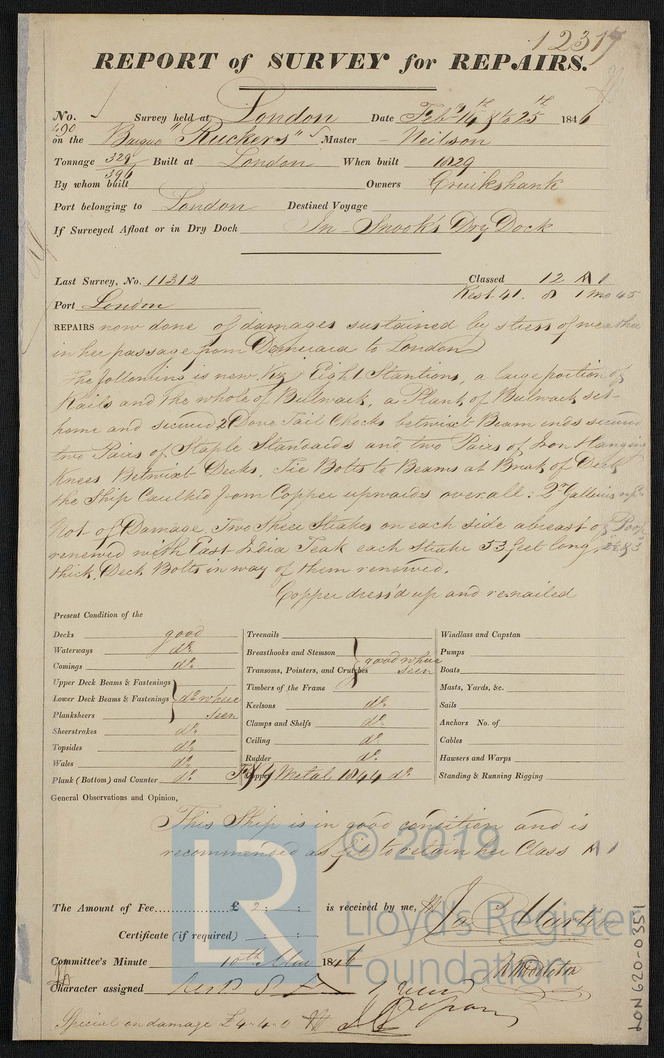 12317
REPORT of SURVEY for REPAIRS.
No. Survey held at London Date Feb 14th & 25th 1846
490
on the Barque "Ruckers" Master Neilson
Tonnage 329 Built at London When built 1829
396
By whom built Owners Cruikshank
Port belonging to London Destined Voyage
If Surveyed Afloat or in Dry Dock In Snook's Dry Dock
Last Survey, No. 11312 Classed 12 A 1
Rest 41. 8 1 mo 45
Port London
REPAIRS now done of damages sustained by stress of weather
in her passage from Demerara to London
The following is new, Viz Eight Stantions, a large portion of
Rails and the whole of Bulwark, a Plank of Bulwark set
home and secured 2 Dove Tail Chocks betwixt Beam ends secured
two Pairs of Staple Standards and two Pairs of Iron Hanging
Knees Betwixt Decks, Tie Bolts to Beams at Break of Deck
the Ship Caulked from Copper upwards over all: Qr Galleries
Not of Damage. Two Sheer Strakes on each side abreast of Poop
renewed with East India Teak each Strake 53 feet long, 2½ & 3
thick, Deck Bolts in way of them renewed.
Copper dress'd up and renailed
Present Condition of the
Decks good
Waterways do
Comings do
Upper Deck Beams & Fastenings
Lower Deck Beams & Fastenings do where
Planksheers seen
Sheerstrakes do
Topsides do
Wales do
Plank (Bottom) and Counter do
Treenails
Breasthooks and Stemson good where
Transoms, Pointers, and Crutches seen
Timbers of the Frame
Keelsons do
Clamps and Shelfs do
Ceiling do
Rudder do
Copper Metal 1844 do
Windlass and Capstan
Pumps
Boats
Masts, Yards, &c.
Sails
Anchors No. of
Cables
Hawsers and Warps
Standing & Running Rigging
General Observations and Opinion,
This Ship is in good condition and is
recommended as fit to retain her Class A 1
© 2019
LR
Lloyd's Register
Foundation
The Amount of Fee £ 2 : : is received by me,
Martin
Certificate (if required) : :
Committee's Minute 10th Mar 1846
Character assigned
Special on damage £4-4-0
LON620-0351